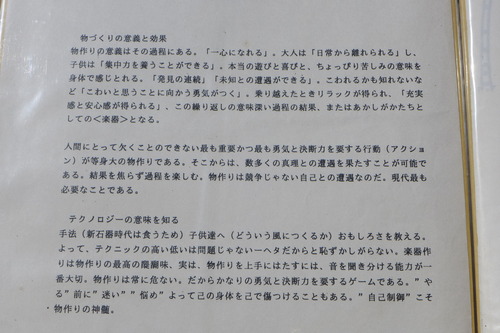 物づくりの意義と効果
物作りの意義はその過程にある。「一心になれる」。大人は「日常から離れられる」し、
子供は「集中力を養うことができる」。本当の遊びと喜びと、ちょっぴり苦しみの意味を
身体で感じとれる。「発見の連続」「未知との遭遇ができる」。こわれるかも知れないな
など「こわいと思うことに向かう勇気がつく」。乗り越えたときリラックが得られ、「充実
感と安心感が得られる」、この繰り返しの意味深い過程の結果、またはあかしがかたちと
しての<楽器>となる。
人間にとって欠くことのできない最も重要かつ最も勇気と決断力を要する行動(アクショ
ン)が等身大の物作りである。そこからは、数多くの真理との遭遇を果たすことが可能で
ある。結果を焦らず過程を楽しむ。物作りは競争じゃない自己との遭遇なのだ。現代最も
必要なことである。
テクノロジーの意味を知る
手法(新石器時代は食うため)子供達へ(どういう風につくるか)おもしろさを教える。
よって、テクニックの高い低いは問題じゃないーヘタだからと恥ずかしがらない。楽器作
りは物作りの最高の醍醐味、実は、物作りを上手にはたすには、音を聞き分ける能力が一
番大切。物作りは常に危ない。だからかなりの勇気と決断力を要するゲームである。”や
る”前に”迷い””悩め”よって己の身体を己で傷つけることもある。”自己制御”こそ
物作りの神髄。